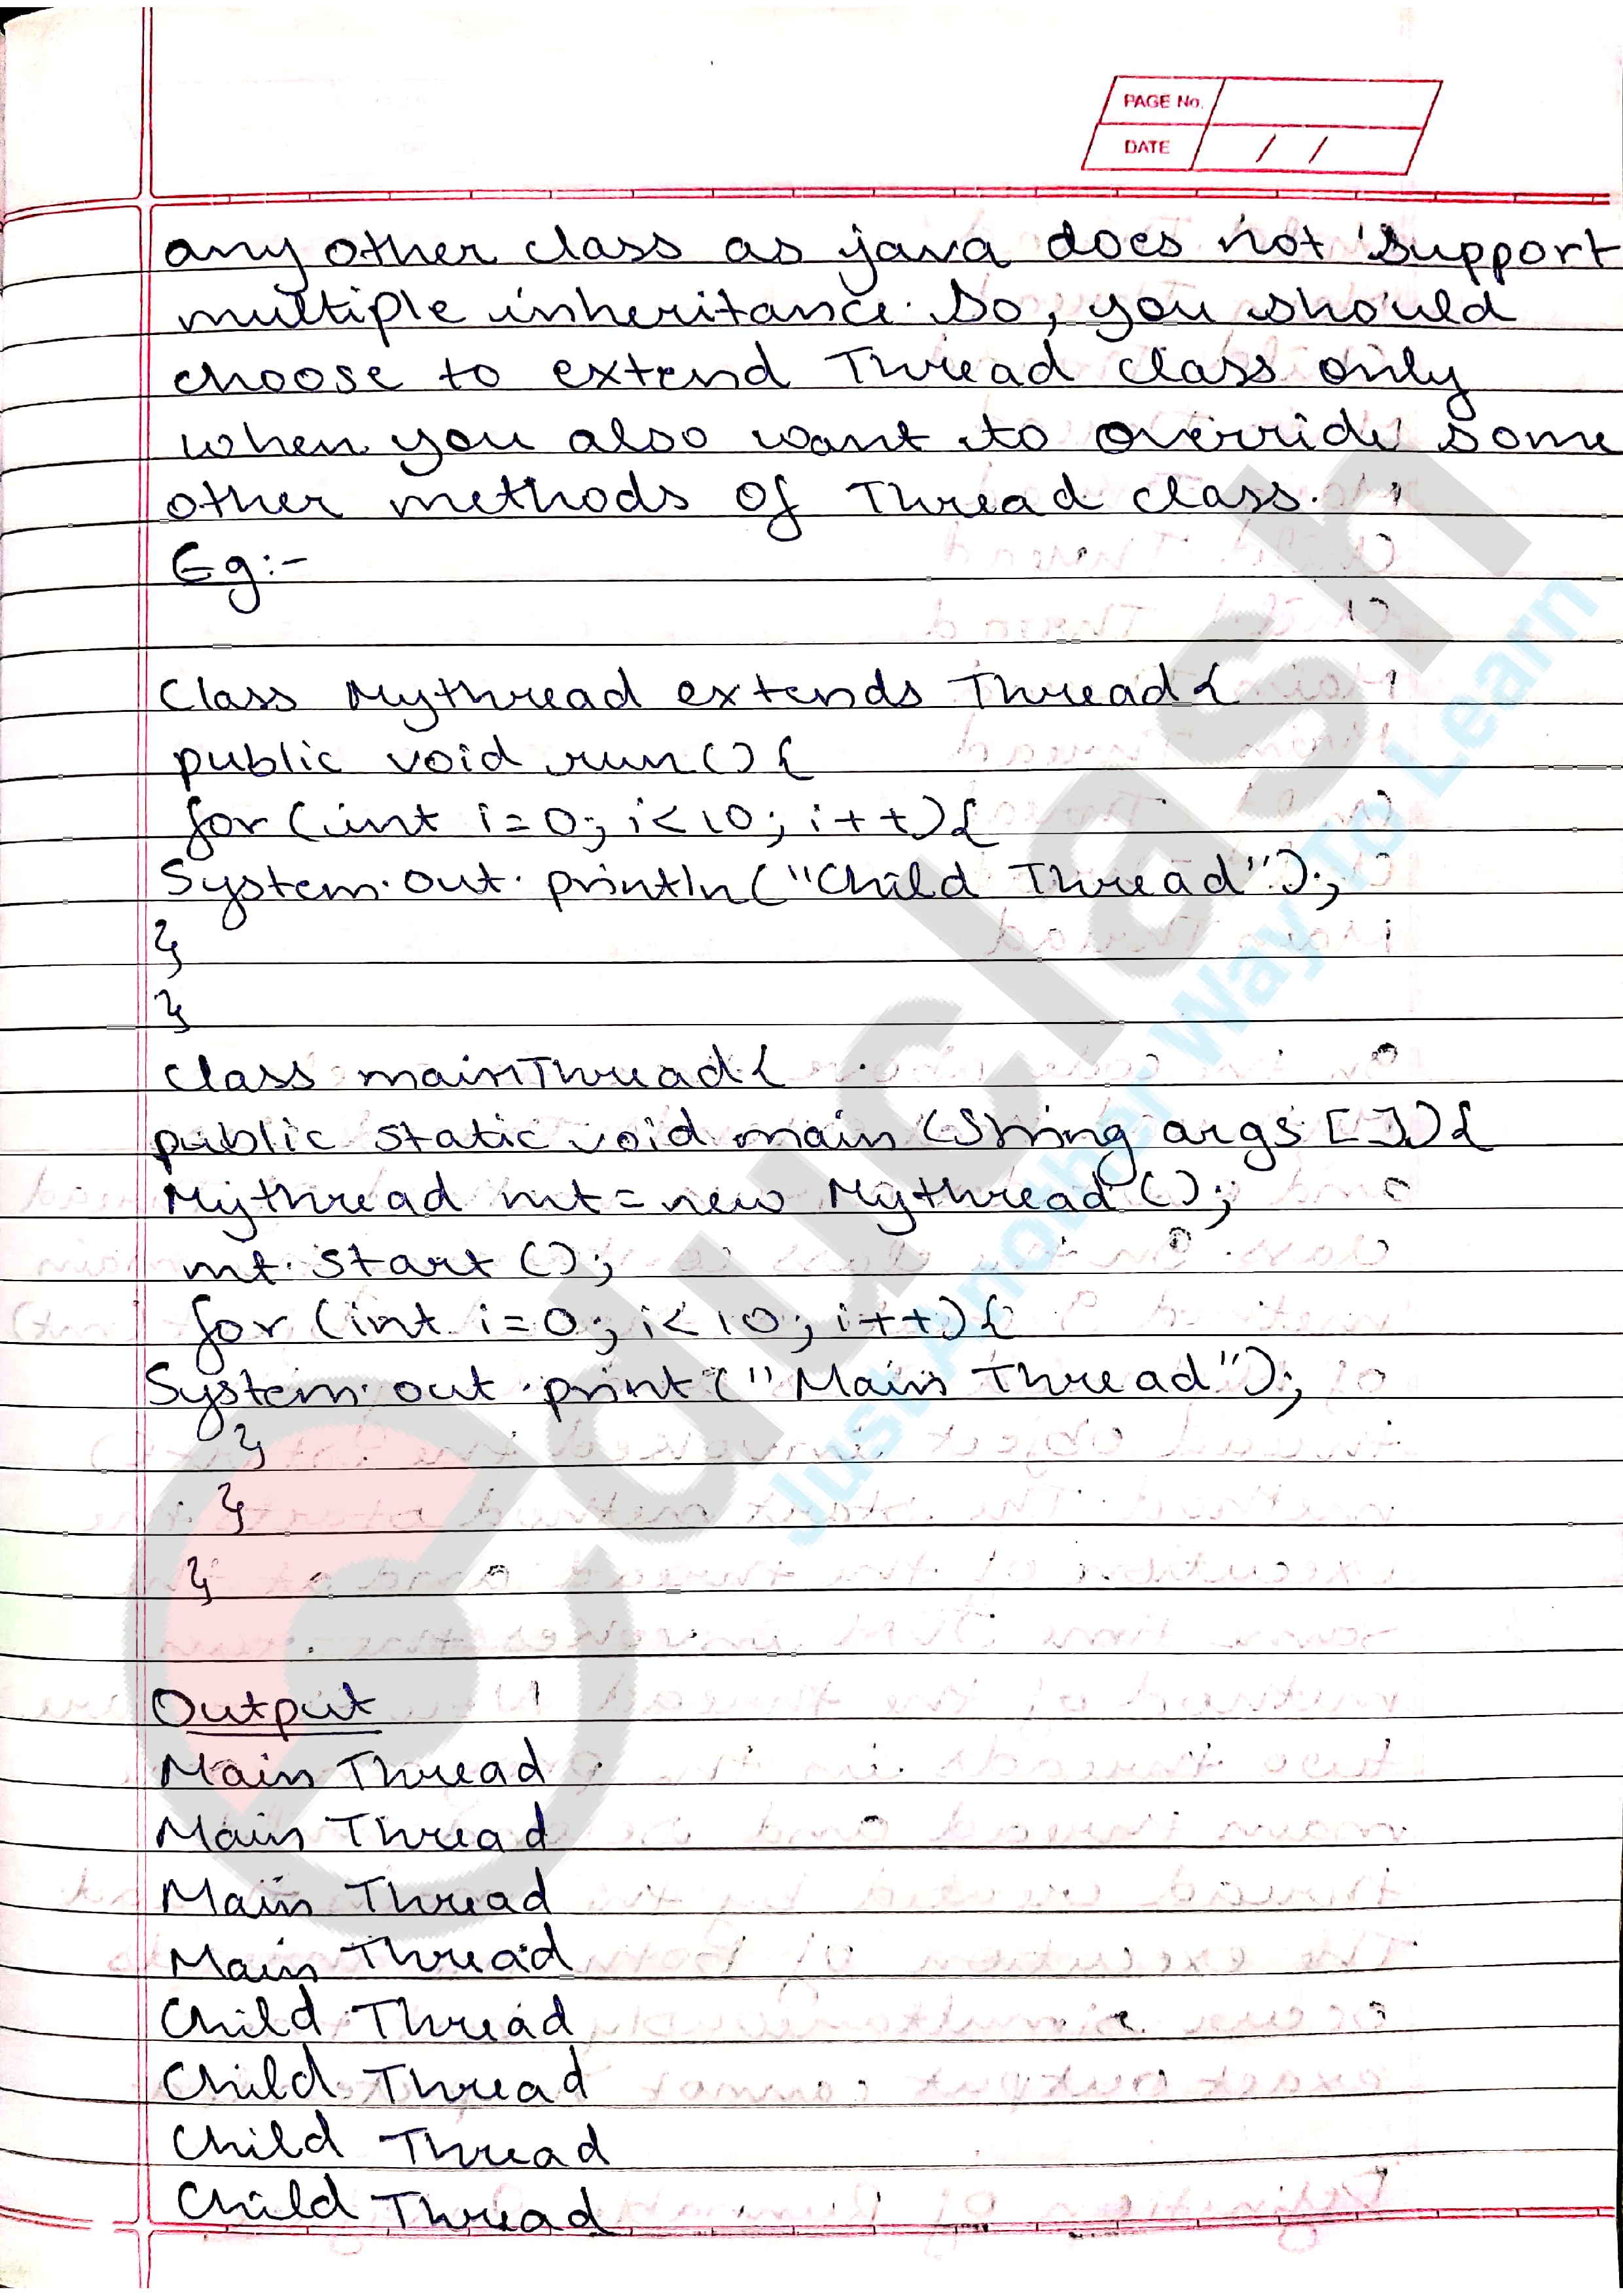 PAGE No.
DATE / /
any other class as java does not support
multiple inheritance. So, you should
choose to extend Thread class only
when you also want to override some
other methods of Thread class.
Eg:-
Class Mythread extends Thread{
public void run(){
for(int i=0; i<10; i++){
System.out.println("Child Thread");
}
}
class mainThread{
public static void main (String args []){
Mythread mt=new Mythread();
mt.start();
for(int i=0; i<10; i++){
System.out.print("Main Thread");
}
}
}
Output
Main Thread
Main Thread
Main Thread
Main Thread
Child Thread
Child Thread
Child Thread
Child Thread
educlash
Just Another Way To Learn